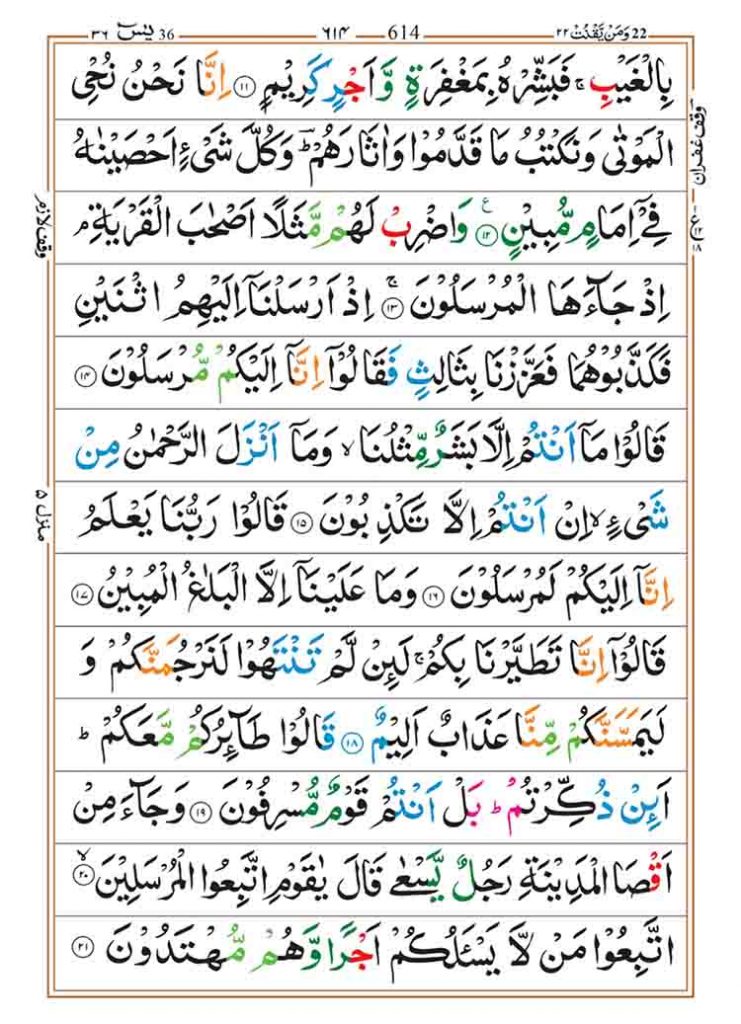 22 وَمَنْ يَّقْنُتْ ٢٢
614 ٦١٤
36 يٰسٓ ٣٦
بِالْغَيْبِ ۚ فَبَشِّرْهُ بِمَغْفِرَةٍ وَّاَجْرٍ كَرِيْمٍ ﴿۱۱﴾ اِنَّا نَحْنُ نُحْيِ
الْمَوْتٰى وَنَكْتُبُ مَا قَدَّمُوْا وَاٰثَارَهُمْ ؕ وَكُلَّ شَىْءٍ اَحْصَيْنٰهُ
فِىْۤ اِمَامٍ مُّبِيْنٍ ﴿۱۲﴾ ع وَاضْرِبْ لَهُمْ مَّثَلًا اَصْحٰبَ الْقَرْيَةِ ۘ
اِذْ جَآءَهَا الْمُرْسَلُوْنَ ﴿۱۳﴾ ۚ اِذْ اَرْسَلْنَاۤ اِلَيْهِمُ اثْنَيْنِ
فَكَذَّبُوْهُمَا فَعَزَّزْنَا بِثَالِثٍ فَقَالُوْۤا اِنَّاۤ اِلَيْكُمْ مُّرْسَلُوْنَ ﴿۱۴﴾
قَالُوْا مَاۤ اَنْتُمْ اِلَّا بَشَرٌ مِّثْلُنَا ۙ وَمَاۤ اَنْزَلَ الرَّحْمٰنُ مِنْ
شَىْءٍ ۙ اِنْ اَنْتُمْ اِلَّا تَكْذِبُوْنَ ﴿۱۵﴾ قَالُوْا رَبُّنَا يَعْلَمُ
اِنَّاۤ اِلَيْكُمْ لَمُرْسَلُوْنَ ﴿۱۶﴾ وَمَا عَلَيْنَاۤ اِلَّا الْبَلٰغُ الْمُبِيْنُ ﴿۱۷﴾
قَالُوْۤا اِنَّا تَطَيَّرْنَا بِكُمْ ۚ لَئِنْ لَّمْ تَنْتَهُوْا لَنَرْجُمَنَّكُمْ وَ
لَيَمَسَّنَّكُمْ مِّنَّا عَذَابٌ اَلِيْمٌ ﴿۱۸﴾ قَالُوْا طَآئِرُكُمْ مَّعَكُمْ ؕ
اَئِنْ ذُكِّرْتُمْ ؕ بَلْ اَنْتُمْ قَوْمٌ مُّسْرِفُوْنَ ﴿۱۹﴾ وَجَآءَ مِنْ
اَقْصَا الْمَدِيْنَةِ رَجُلٌ يَّسْعٰى قَالَ يٰقَوْمِ اتَّبِعُوا الْمُرْسَلِيْنَ ﴿۲۰﴾ ۙ
اتَّبِعُوْا مَنْ لَّا يَسْـَٔلُكُمْ اَجْرًا وَّهُمْ مُّهْتَدُوْنَ ﴿۲۱﴾
وقف غفران
وقف لازم
منزل ٥